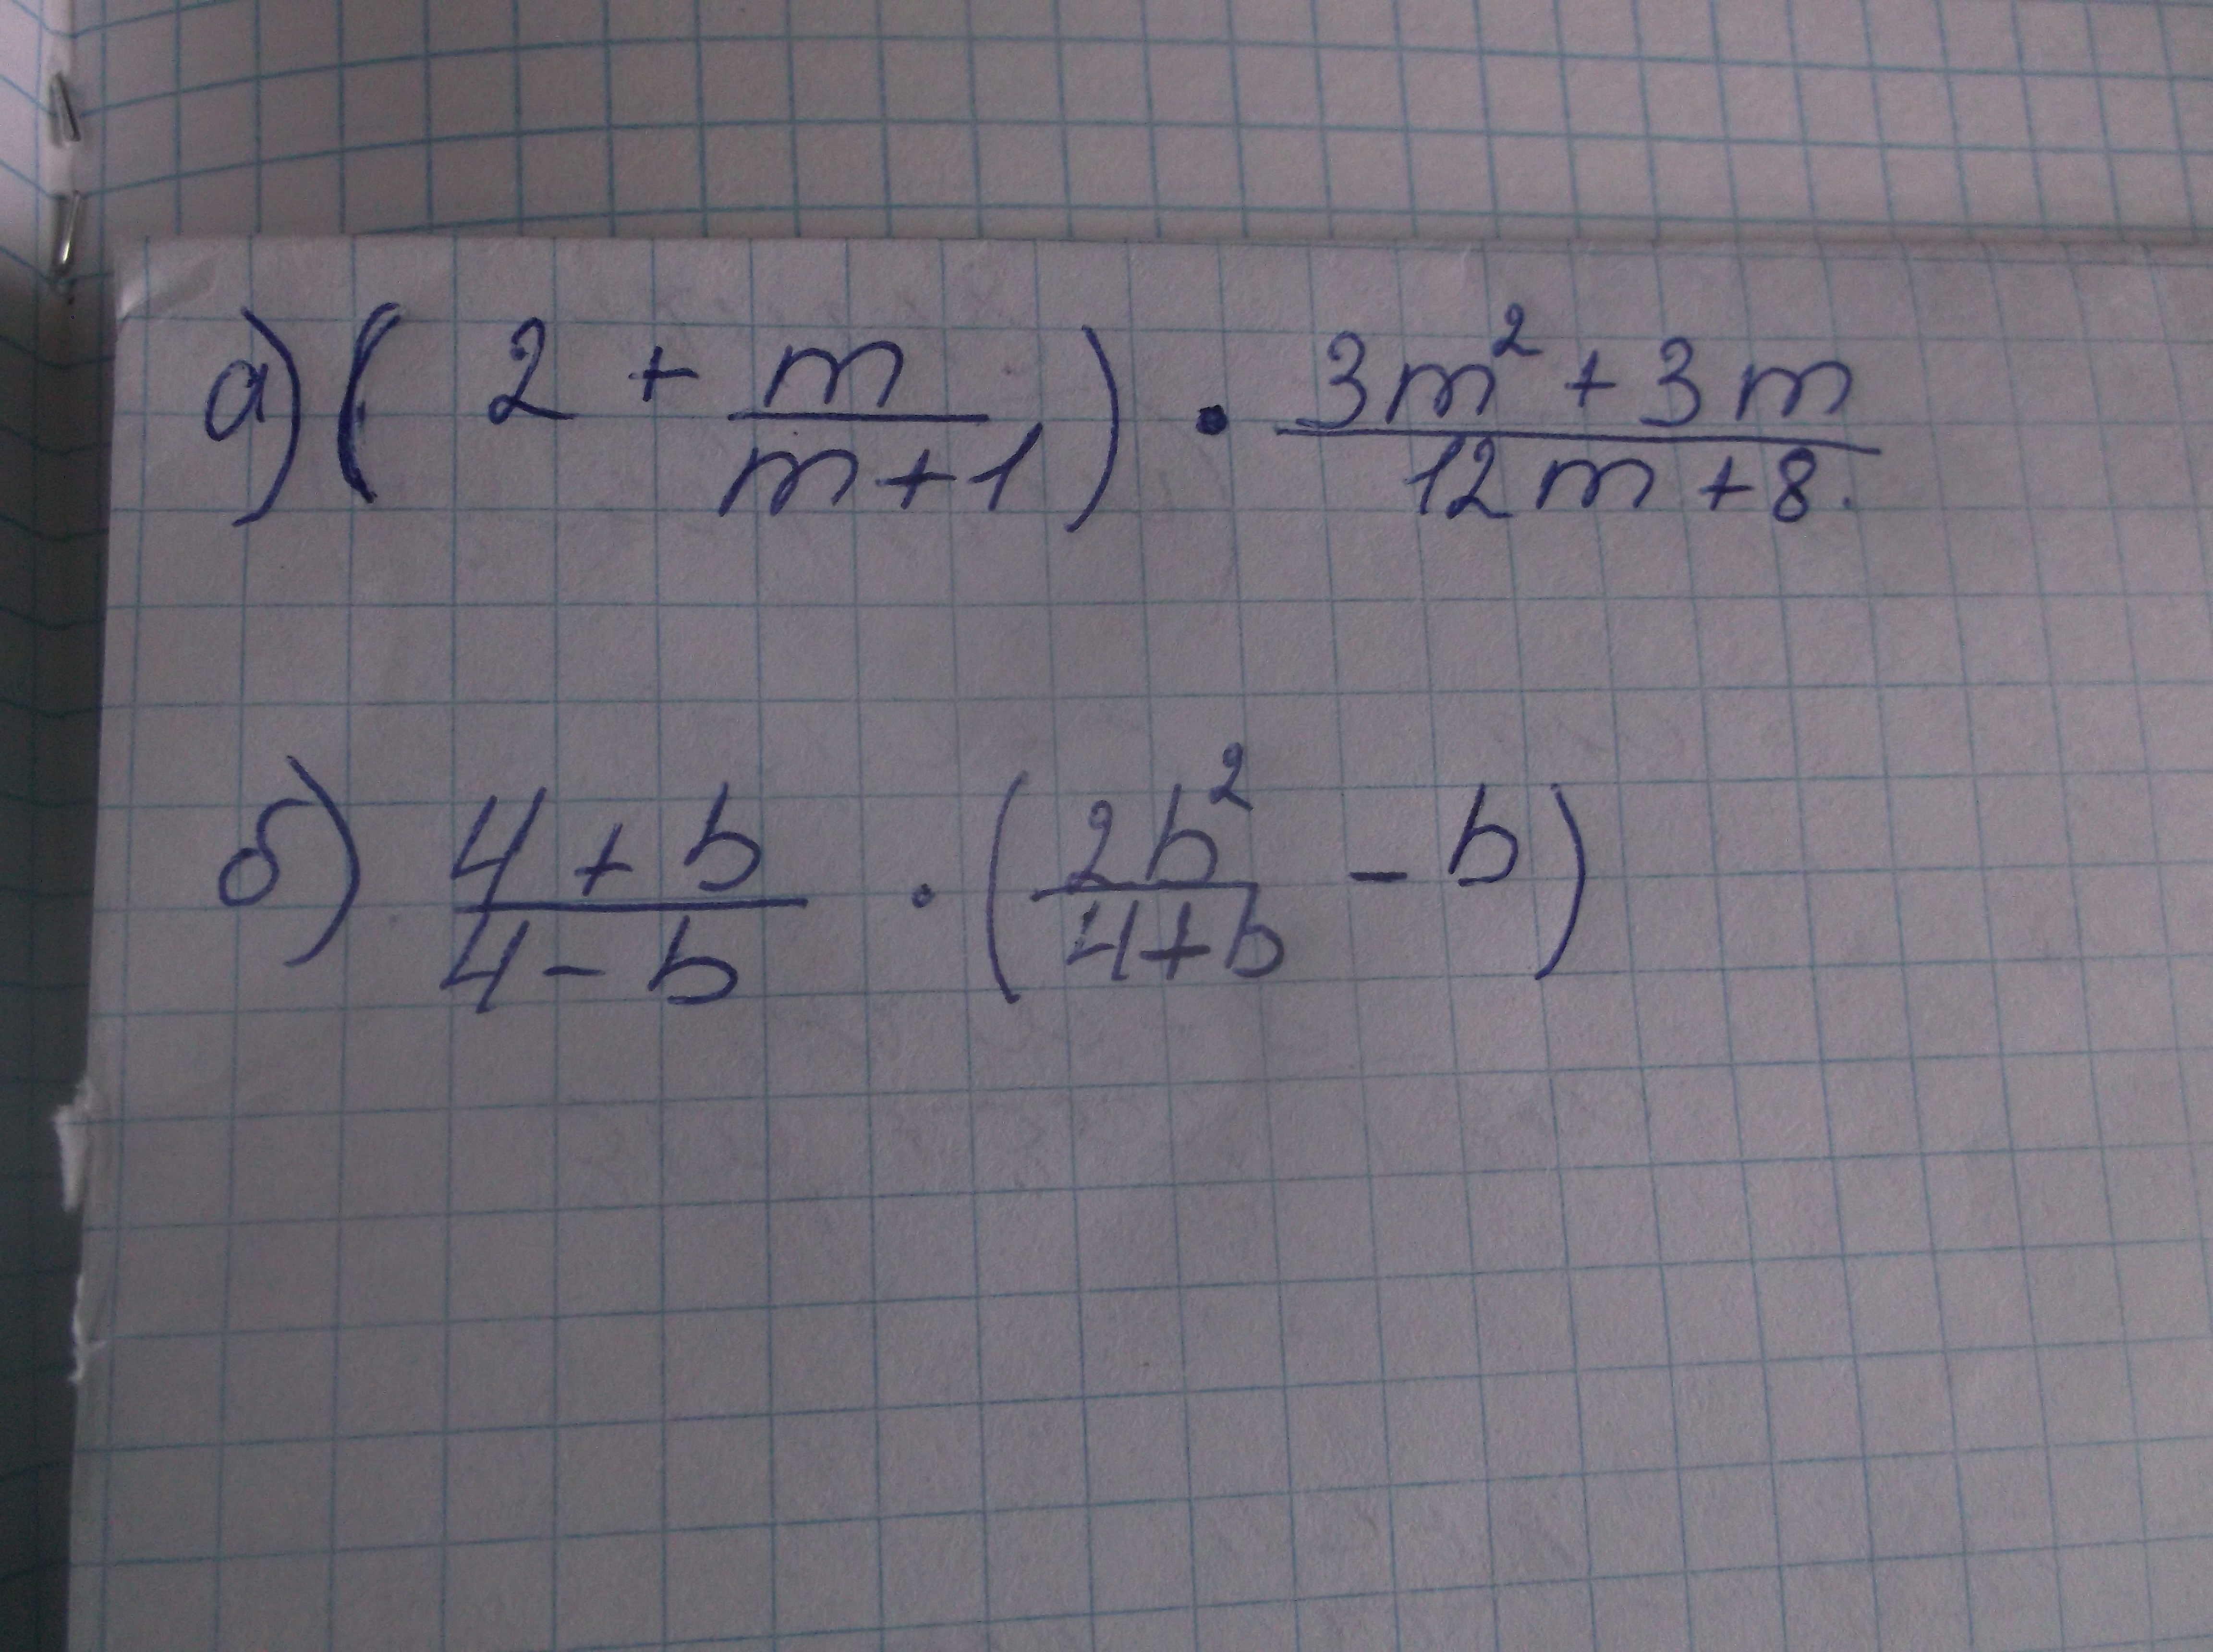 а) ( 2 + m/(m+1) ) · (3m² + 3m)/(12m + 8)
б) (4 + b)/(4 - b) · ( 2b²/(4+b) - b )